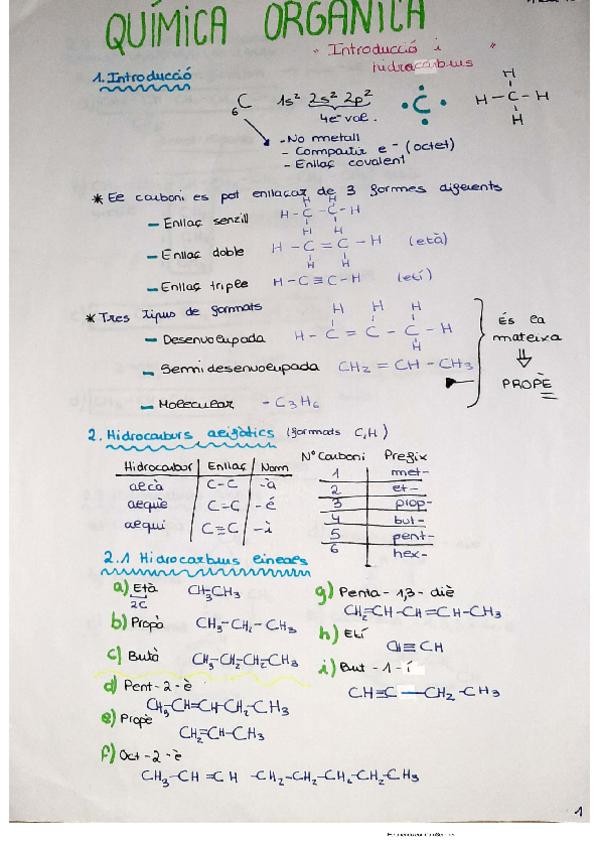 QUÍMICA ORGÀNICA
" Introducció i
hidrocarburs "
1. Introducció
₆C 1s² 2s² 2p²
4e⁻ val.
C
H
H - C - H
H
- No metall
- Compartir e⁻ (octet)
- Enllaç covalent
* El carboni es pot enllaçar de 3 formes diferents
H H
- Enllaç senzill H - C - C - H
H H
- Enllaç doble H - C = C - H (età)
H H
- Enllaç triple H - C ≡ C - H (etí)
* Tres tipus de formats
H H H
- Desenvolupada H - C = C - C - H
H
- Semidesenvolupada CH₂ = CH - CH₃
- Molecular - C₃H₆
És la
mateixa
⇓
PROPÈ
2. Hidrocarburs alifàtics (formats C,H)
Hidrocarbur Enllaç Nom
alcà C-C -à
alquè C=C -é
alquí C≡C -í
Nº Carboni Prefix
1 met-
2 et-
3 prop-
4 but-
5 pent-
6 hex-
2.1 Hidrocarburs lineals
a) Età CH₃CH₃
2C
b) Propà CH₃-CH₂-CH₃
c) Butà CH₃-CH₂-CH₂-CH₃
d) Pent-2-è
CH₃-CH=CH-CH₂-CH₃
e) Propè
CH₂=CH-CH₃
f) Oct-2-è
CH₃-CH=CH-CH₂-CH₂-CH₂-CH₂-CH₃
g) Penta-1,3-diè
CH₂=CH-CH=CH-CH₃
h) Etí
CH≡CH
i) But-1-í
CH≡C-CH₂-CH₃
1